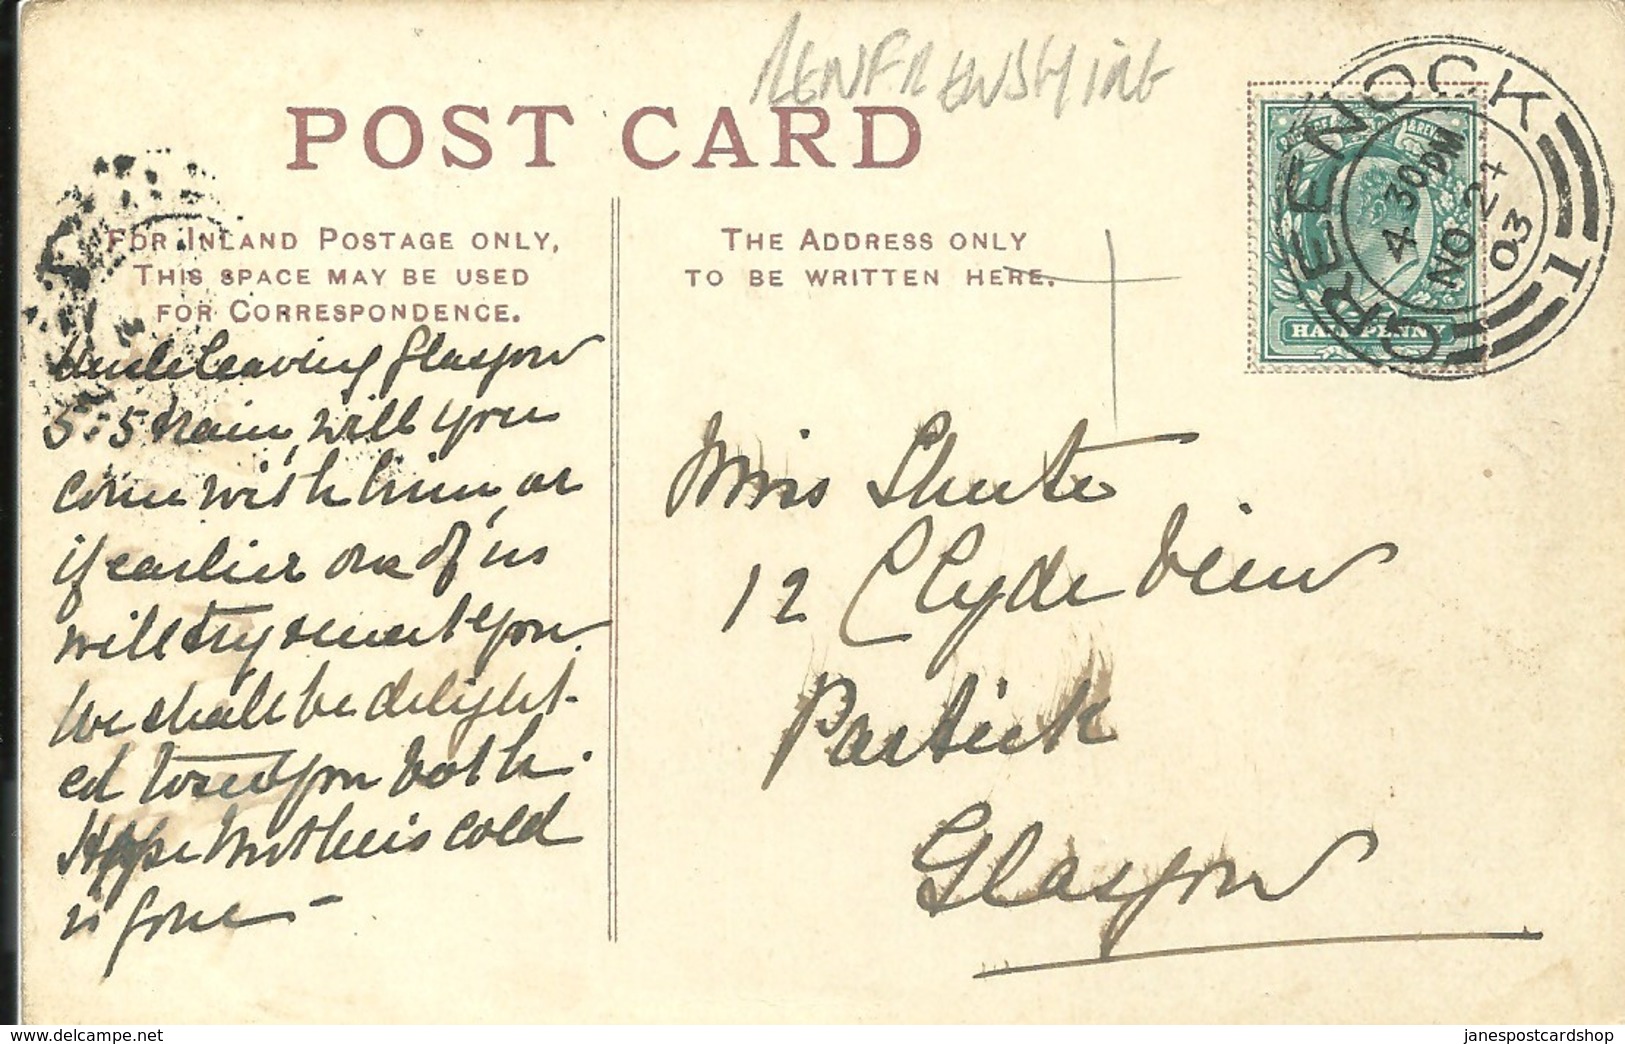 RENFREWSHIRE
POST CARD
FOR INLAND POSTAGE ONLY,
THIS SPACE MAY BE USED
FOR CORRESPONDENCE.
THE ADDRESS ONLY
TO BE WRITTEN HERE.
GREENOCK
4 30 PM
NO 24
03
T
HALFPENNY
Uncle leaving Glasgow
5.5 train, will you
come with him, or
if earlier one of us
will try & meet you
We shall be delight-
ed to see you both.
Hope Mother's cold
is gone -
Miss Shute
12 Clyde View
Partick
Glasgow
delcampe.net
janespostcardshop